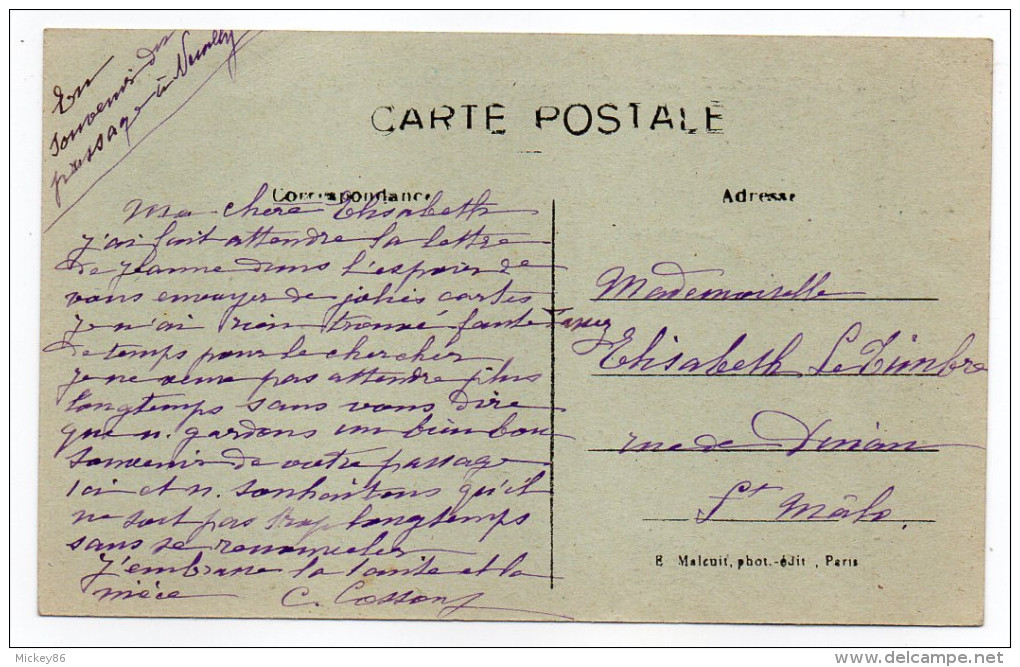 En
souvenir du
passage à Neuilly
CARTE POSTALE
Correspondance
Adresse
Ma chère Elisabeth
J'ai fait attendre la lettre
de Jeanne dans l'espoir de
vous envoyer de jolies cartes
je n'ai rien trouvé faute
de temps pour le chercher
je ne veux pas attendre plus
longtemps sans vous dire
que n. gardons un bien bon
souvenir de votre passage
ici et n. souhaitons qu'il
ne soit pas trop longtemps
sans se renouveler
J'embrasse la tante et la
nièce C. Cossons
Mademoiselle
Elisabeth Le Timbre
rue de Dinan
St Mâlo.
E Malcuit, phot.-édit, Paris
Mickey86
www.delcampe.net